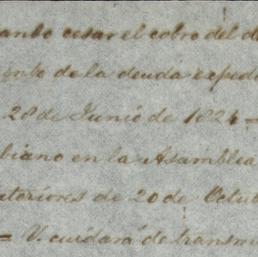 cesar el cobro del d
de la deuda espedi
28 de Junio de 1824 =
biano en la Asamblea
teriores de 20 de Octub
= V. cuidará de transmi